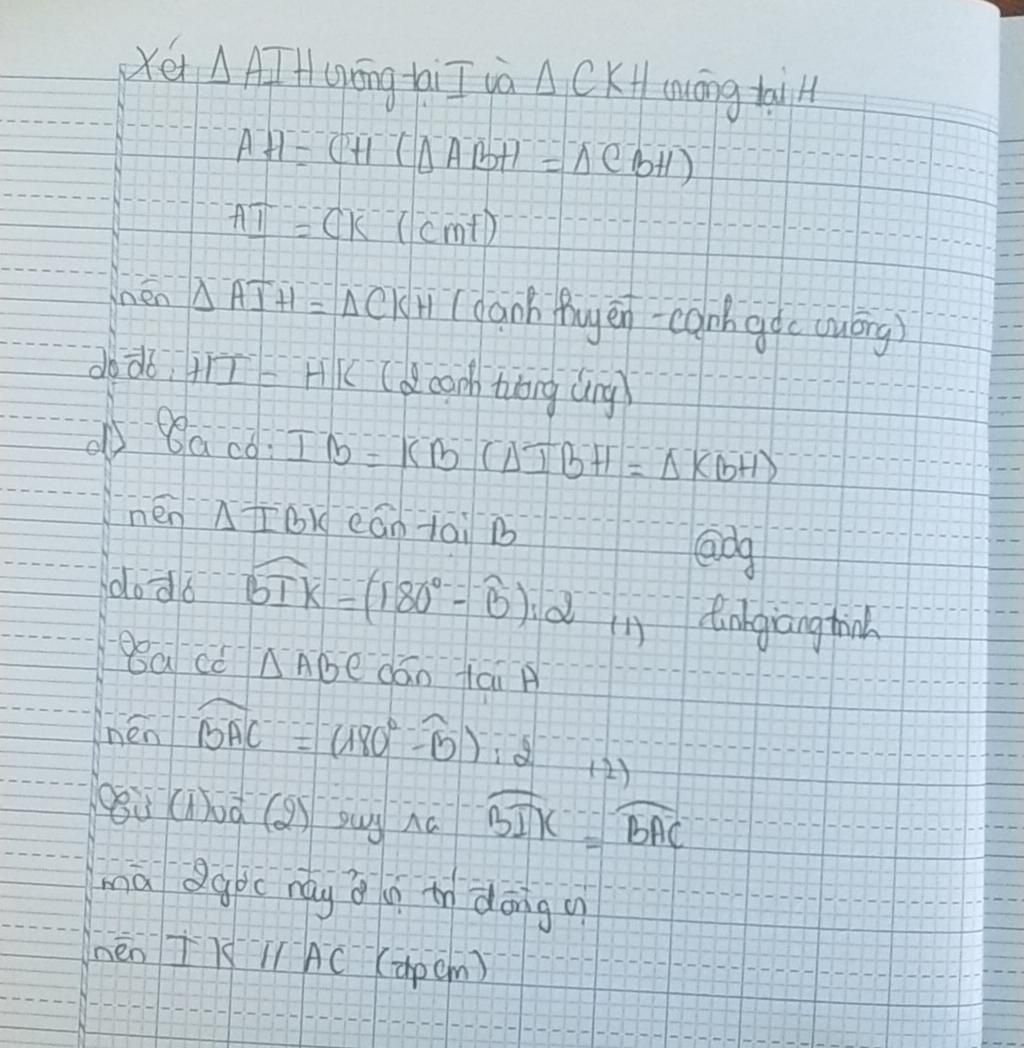 Xét Δ AIH vuông tại I và Δ CKH vuông tại H
AH = CH (Δ ABH = Δ CBH)
AI = CK (cmt)
nên Δ AIH = Δ CKH (cạnh huyền - cạnh góc vuông)
do đó: HI = HK (2 cạnh tương ứng)
d) Ta có: IB = KB (Δ IBH = Δ KBH)
nên Δ IBK cân tại B
@dg
do đó \widehat{BIK} = (180° - \widehat{B}) : 2 (1)
dinhgiangtrinh
Ta có Δ ABC cân tại A
nên \widehat{BAC} = (180° - \widehat{B}) : 2 (2)
Từ (1) và (2) suy ra \widehat{BIK} = \widehat{BAC}
mà 2 góc này ở vị trí đồng vị
nên IK // AC (đpcm)